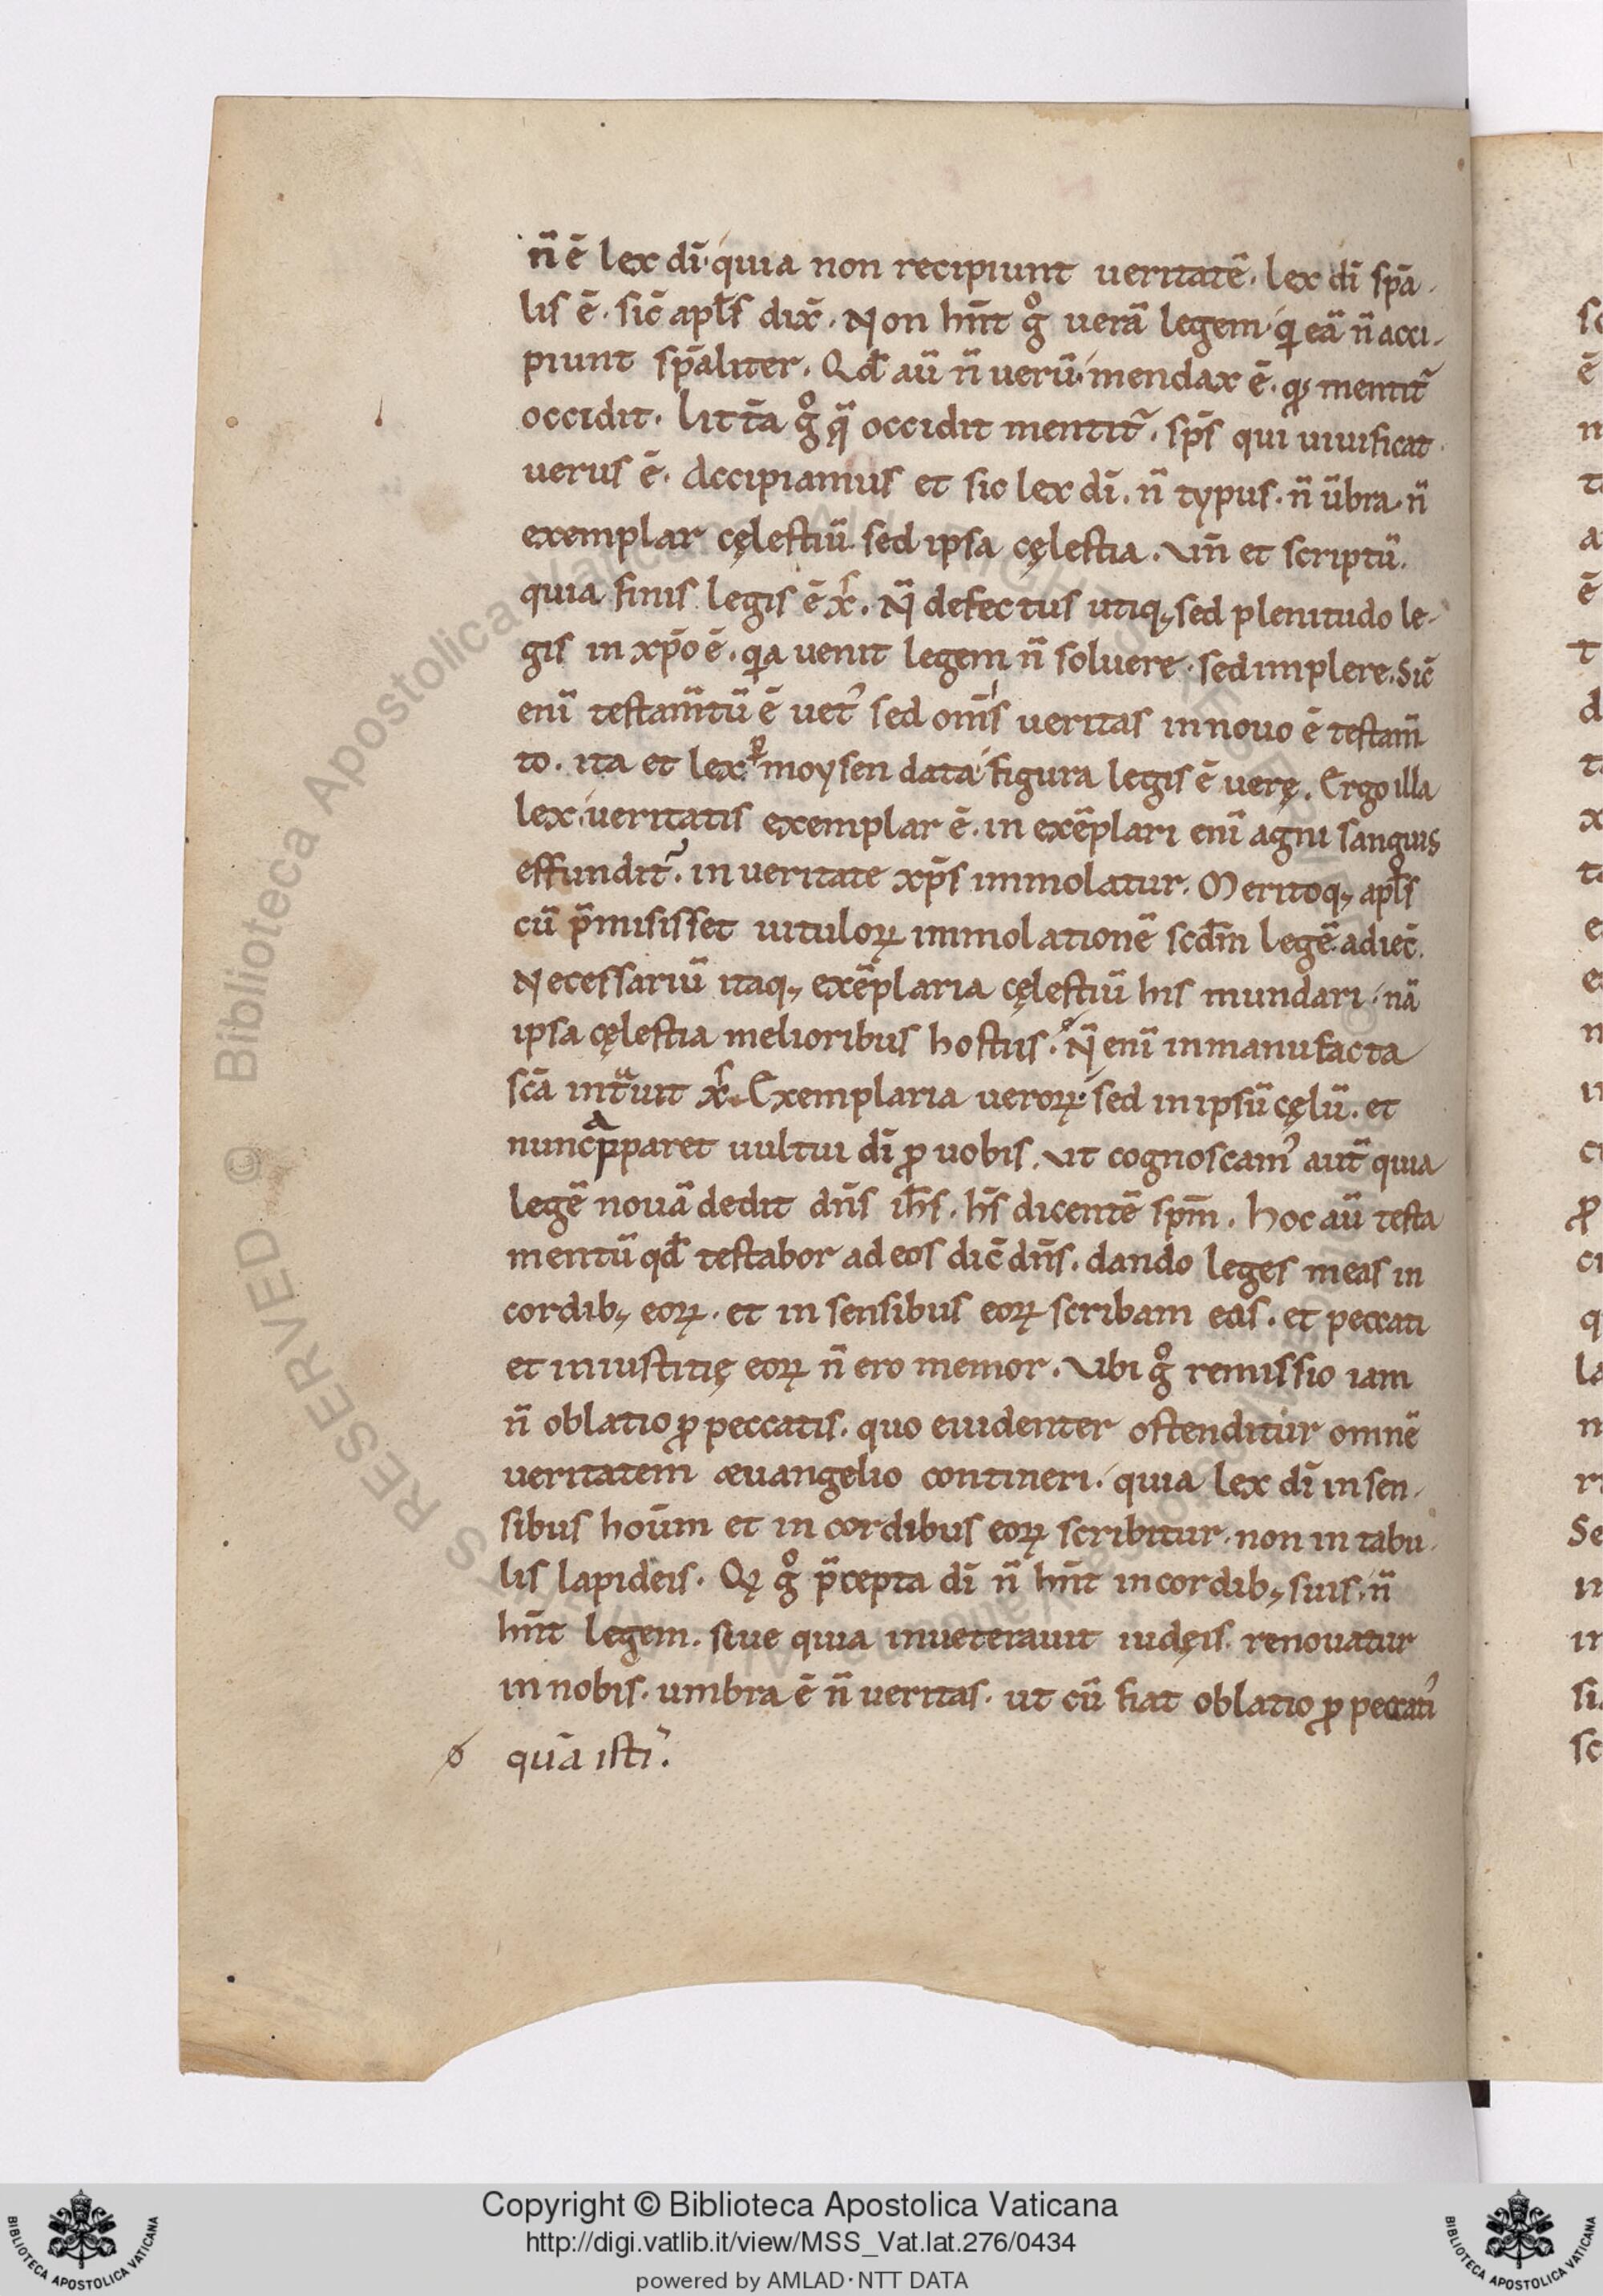 n̄ ē lex dī quia non recipiunt ueritatē. lex dī sp̄a-
lis ē. sic̄ apl̄s dix̄. Non hn̄t gͦ uerā legem qi eā n̄ acci-
piunt sp̄aliter. Qd̄ aū n̄ uerū mendax ē. qd mentit᷑
occidit. litt̄a gͦ q̄ occidit mentit᷑. sp̄s qui uiuificat
uerus ē. Accipiamus et sic lex dī. n̄ typus. n̄ ūbra n̄
exemplar cęlestiū sed ipsa cęlestia. Vn̄ et scriptū.
quia finis legis ē xͬ. N̄ defectus utiq; sed plenitudo le-
gis in xp̄o ē. qia uenit legem n̄ soluere. sed implere. Sic̄
enī testam̄tū ē uet᾽ sed om̄s ueritas in nouo ē testam̄
to. ita et lex ꝑ moysen data figura legis ē uerę. Ergo illa
lex ueritatis exemplar ē. in exēplari enī agni sanguis
effundit᷑. in ueritate xp̄s immolatur. Meritoq; apl̄s
cū p̄misisset uituloꝝ immolationē scd̄m legē adiec̄.
Necessariū itaq; exēplaria cęlestiū his mundari. nā
ipsa cęlestia melioribus hostiis. N̄ enī in manufacta
sc̄a int̄uit xͬ. Exemplaria ueroꝝ sed in ipsū cęlū. et
nunc apparet uultui dī ꝓ uobis. Vt cognoscam᾽ aut̄ quia
legē nouā dedit dn̄s ih̄s. hr̄s dicentē sp̄m. hoc aū testa
mentū qd̄ testabor ad eos dic̄ dn̄s. dando leges meas in
cordib; eoꝝ. et in sensibus eoꝝ scribam eas. et peccati
et iniustitię eoꝝ n̄ ero memor. Vbi gͦ remissio iam
n̄ oblatio ꝓ peccatis. quo euidenter ostenditur omnē
ueritatem æuangelio contineri. quia lex dī in sen-
sibus hoūm et in cordibus eoꝝ scribitur. non in tabu-
lis lapideis. Qi gͦ p̄cepta dī n̄ hn̄t in cordib; suis. n̄
hn̄t legem. siue quia inueterauit iudęis renouatur
in nobis. umbra ē n̄ ueritas. ut cū fiat oblatio ꝓ peccati᾽
ꝍ quā isti᾽.
Copyright © Biblioteca Apostolica Vaticana
http://digi.vatlib.it/view/MSS_Vat.lat.276/0434
powered by AMLAD·NTT DATA
BIBLIOTECA APOSTOLICA VATICANA
BIBLIOTECA APOSTOLICA VATICANA